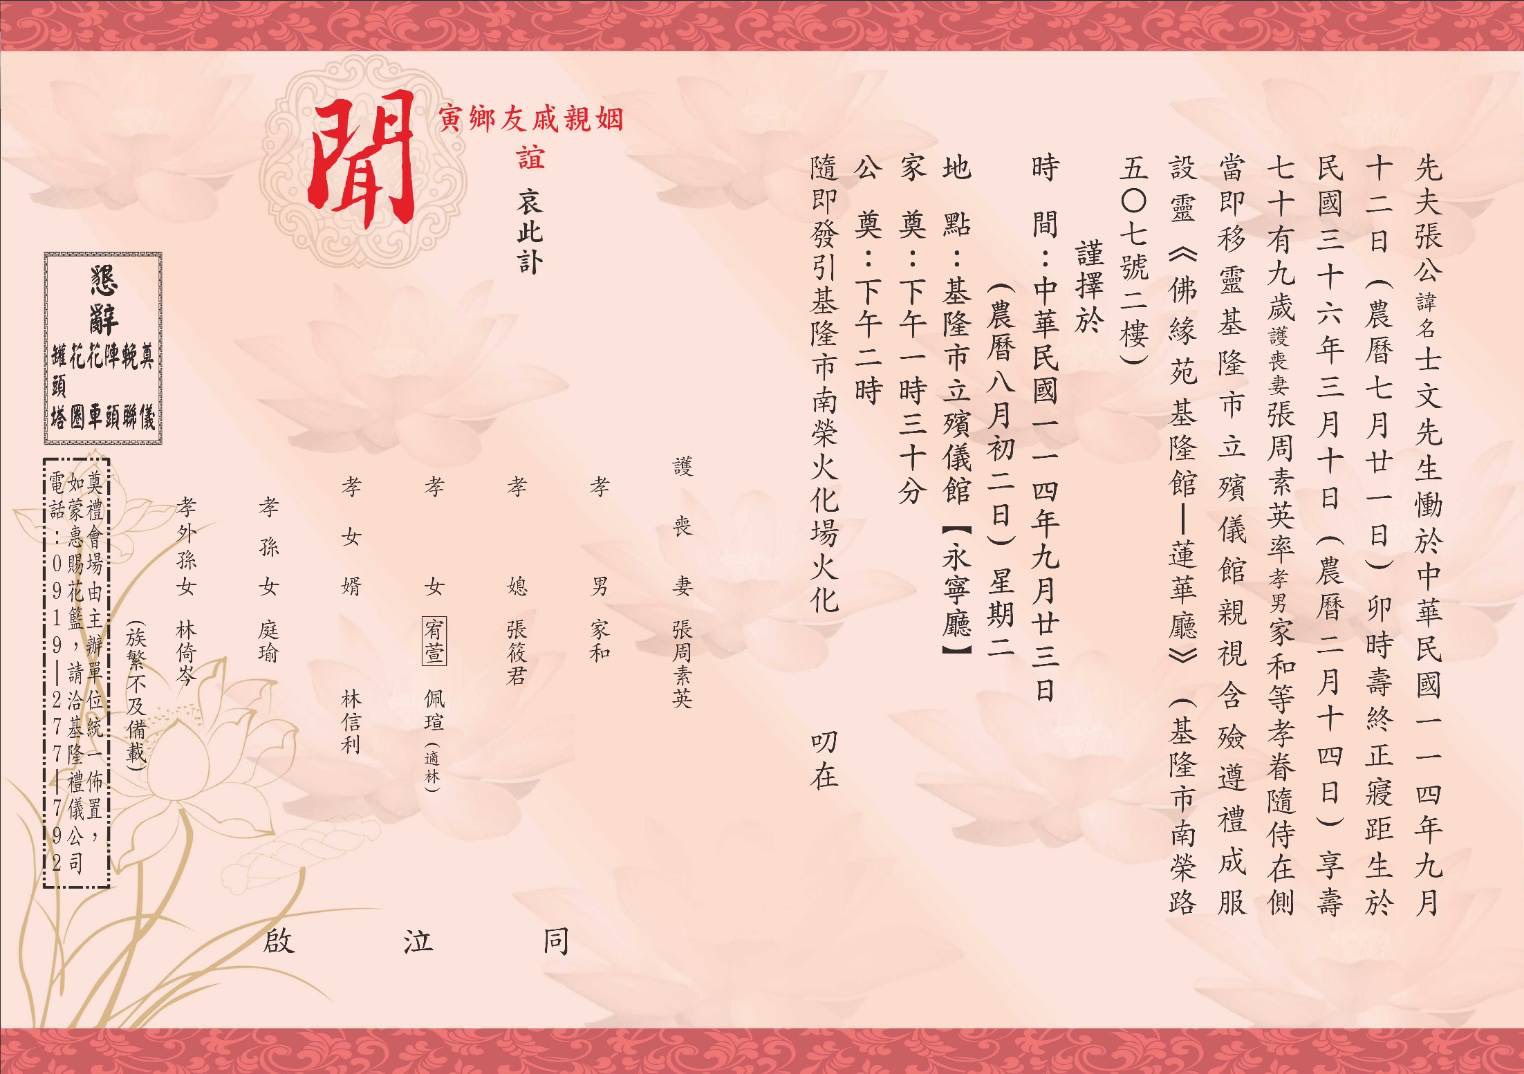 先夫張公諱名士文先生慟於中華民國一一四年九月
十二日(農曆七月廿一日)卯時壽終正寢距生於
民國三十六年三月十日(農曆二月十四日)享壽
七十有九歲護喪妻張周素英率孝男家和等孝眷隨侍在側
當即移靈基隆市立殯儀館親視含殮遵禮成服
設靈《佛緣苑基隆館—蓮華廳》(基隆市南榮路
五〇七號二樓)
謹擇於
時間:中華民國一一四年九月廿三日
(農曆八月初二日)星期二
地點:基隆市立殯儀館【永寧廳】
家奠:下午一時三十分
公奠:下午二時
隨即發引基隆市南榮火化場火化 叨在
姻親戚友鄉寅
誼
哀此訃
聞
護喪妻 張周素英
孝男 家和
孝媳 張筱君
孝女 宥萱 佩瑄(適林)
孝女婿 林信利
孝孫女 庭瑜
孝外孫女 林倚岑
(族繁不及備載)
同泣啟
懇辭
奠儀
輓聯
陣頭
花車
花圈
罐頭塔
奠禮會場由主辦單位統一佈置,
如蒙惠賜花籃,請洽基隆禮儀公司
電話:0919—277—792